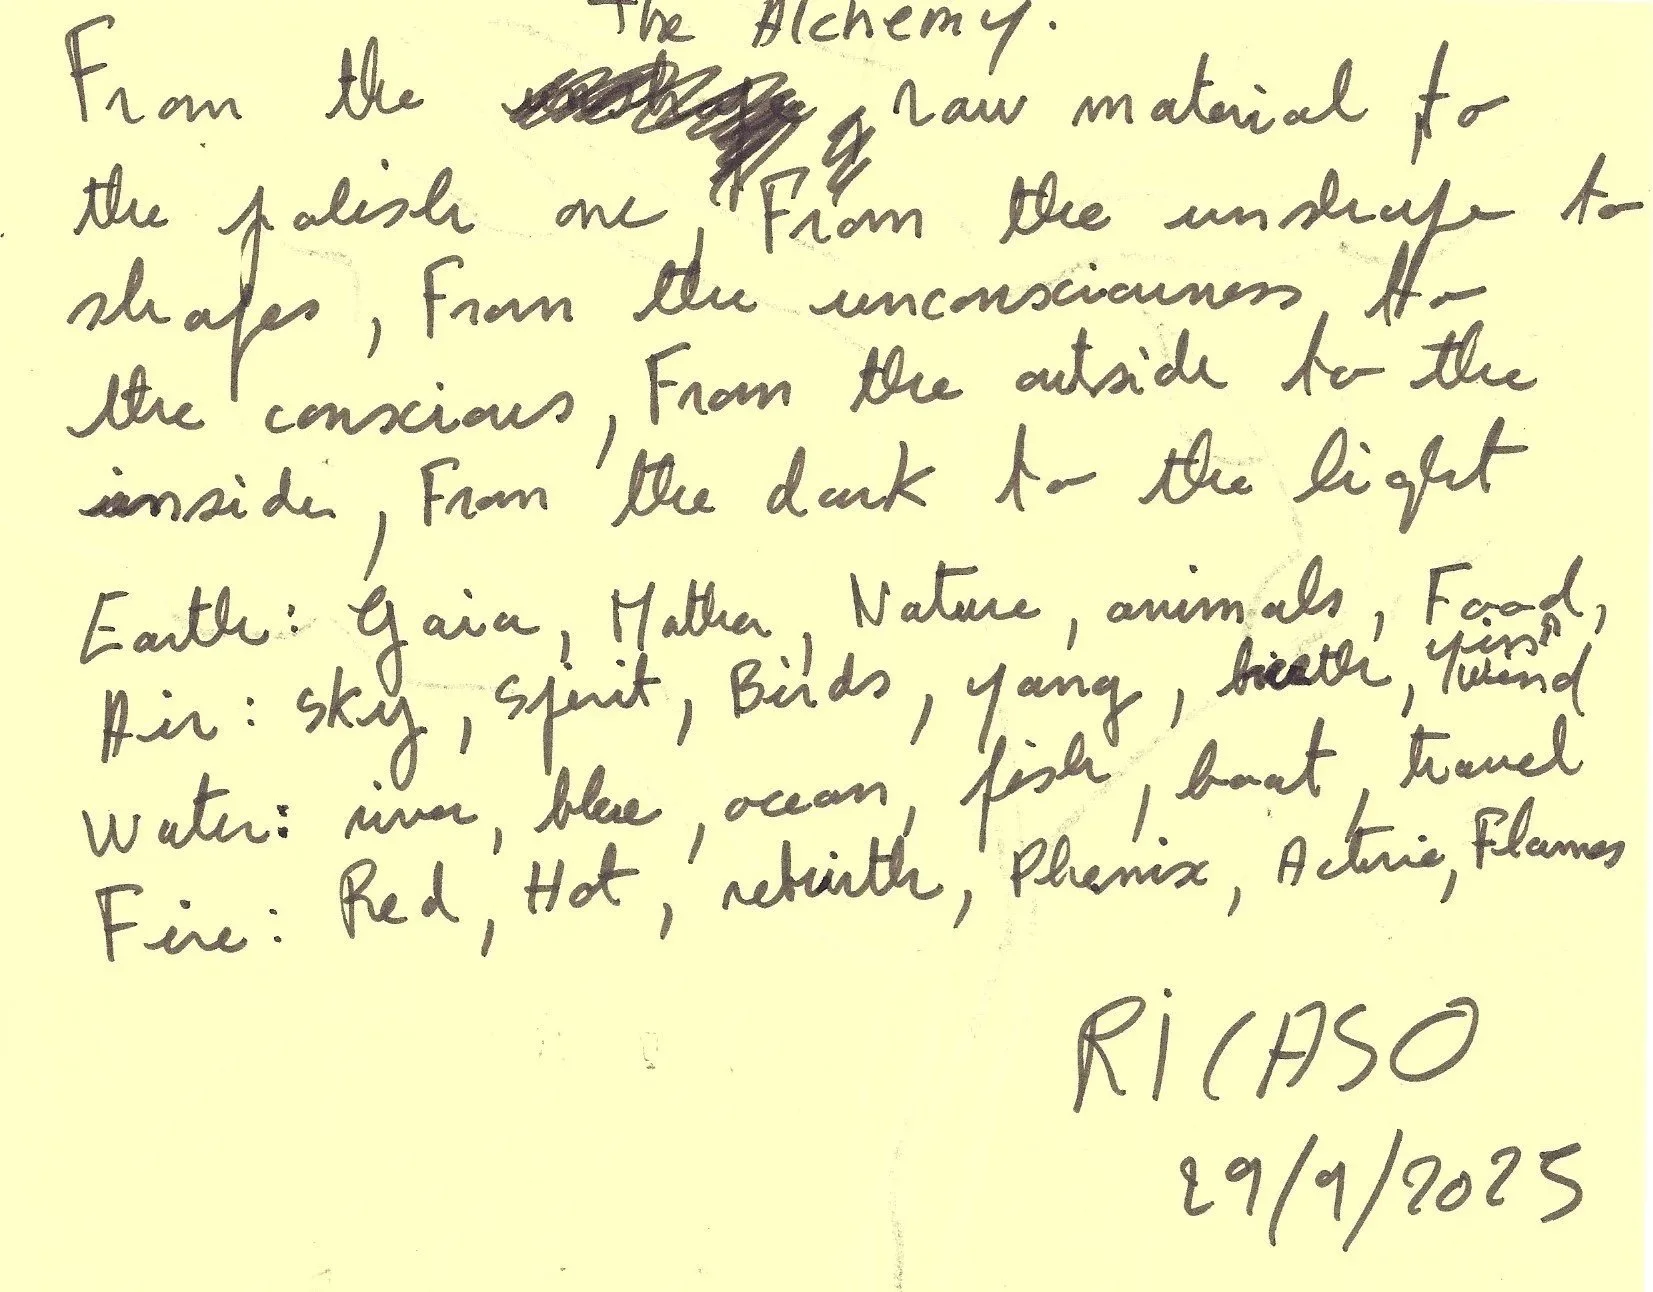 The Alchemy.
From the raw material to
the polish one, From the unshape to
shapes, From the unconsciouness, to
the conscious, From the outside to the
inside, From the dark to the light
Earth: Gaia, Mother, Nature, animals, Food,
Air: sky, Spirit, Birds, yang, , Wind
Water: river, blue, ocean, fish, boat, travel
Fire: Red, Hot, rebirth, Phenix, , Flames
RICASO
29/9/2025